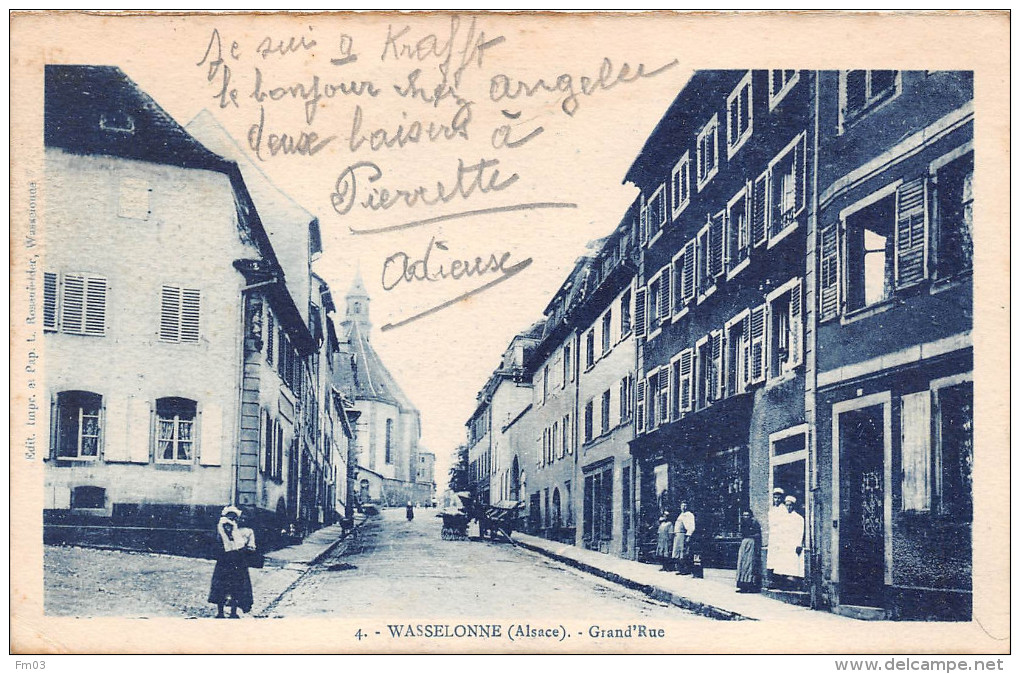 Je suis a Krafft
le bonjour chez angeleu
deux baisers à
Pierrette
Adieuse
Edit. Impr. et Pap. L. Wasselonne
4. - WASSELONNE (Alsace). - Grand'Rue
Fm03
www.delcampe.net